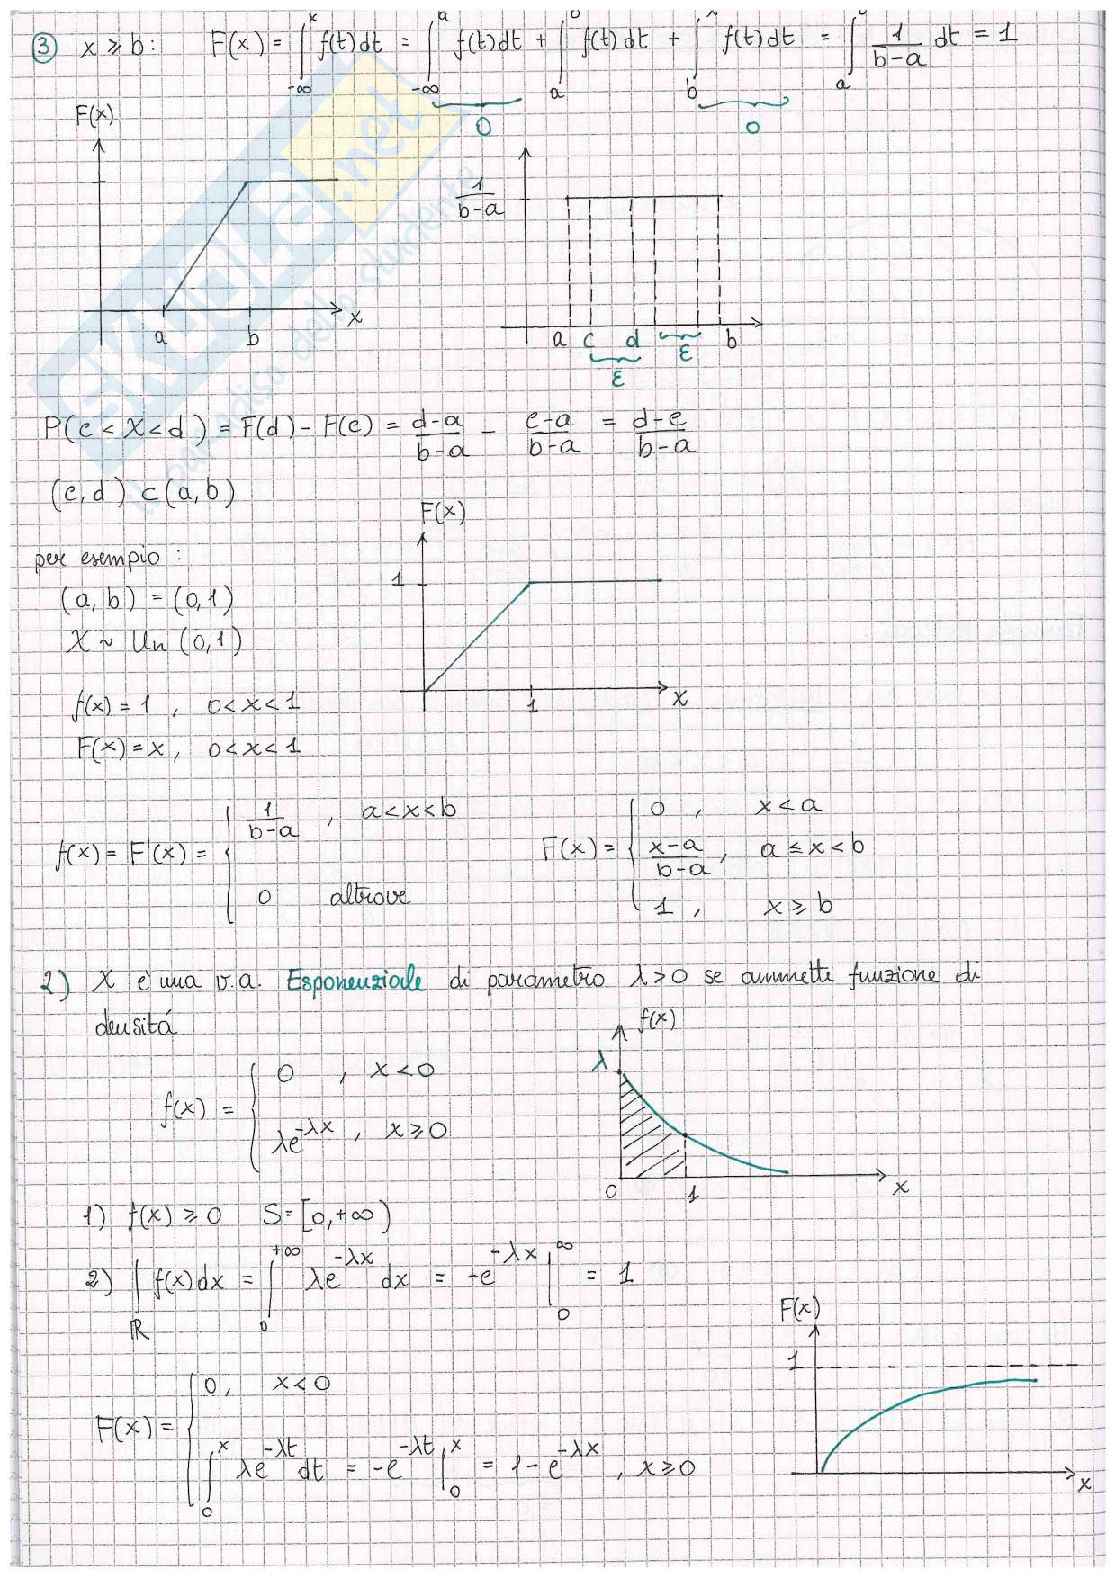 ③ x ≥ b: F(x) = ∫_{-∞}^{x} f(t)dt = ∫_{-∞}^{a} f(t)dt + ∫_{a}^{b} f(t)dt + ∫_{b}^{x} f(t)dt = ∫_{a}^{b} 1/(b-a) dt = 1
0 0
F(x)
a b x
1/(b-a)
a c d b
ε ε
P(c < X < d) = F(d) - F(c) = (d-a)/(b-a) - (c-a)/(b-a) = (d-c)/(b-a)
(c,d) ⊂ (a,b)
F(x)
1
1 x
per esempio:
(a,b) = (0,1)
X ~ Un (0,1)
f(x) = 1 , 0<x<1
F(x) = x , 0<x<1
f(x) = F'(x) = { 1/(b-a) , a<x<b
0 altrove
F(x) = { 0 , x<a
(x-a)/(b-a) , a ≤ x < b
1 , x ≥ b
2) X è una v.a. Esponenziale di parametro λ>0 se ammette funzione di
densitá
f(x) = { 0 , x<0
λe^{-λx} , x≥0
f(x)
λ
0 1 x
1) f(x) ≥ 0 S=[0,+∞)
2) ∫_{ℝ} f(x)dx = ∫_{0}^{+∞} λe^{-λx} dx = -e^{-λx} |_{0}^{∞} = 1
F(x)
1
x
F(x) = { 0, x<0
∫_{0}^{x} λe^{-λt} dt = -e^{-λt} |_{0}^{x} = 1-e^{-λx} , x≥0